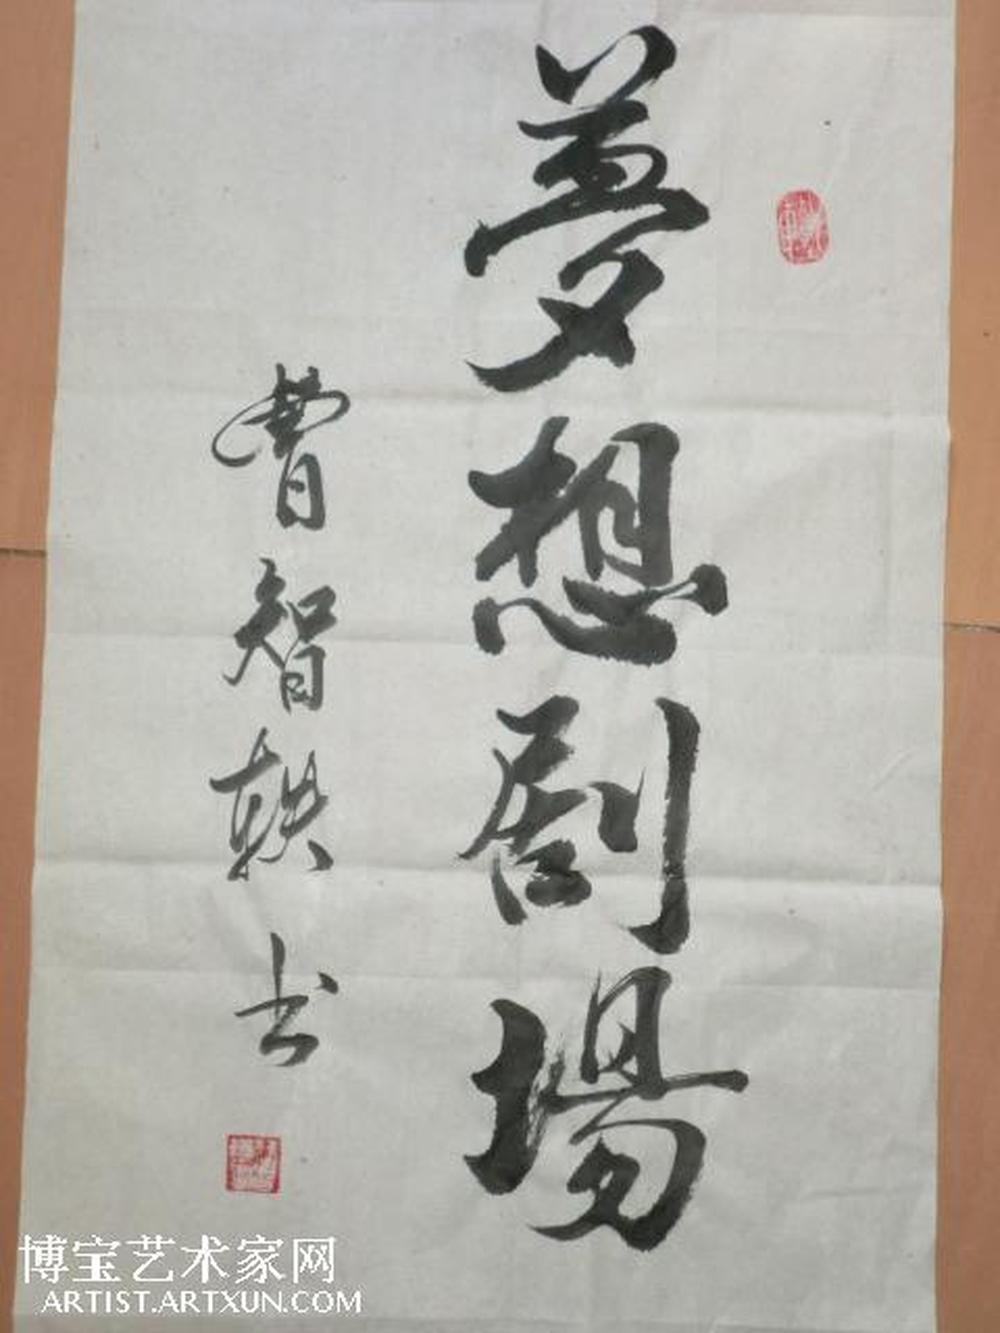 夢想剧場
曹智軼书
博宝艺术家网
ARTIST.ARTXUN.COM